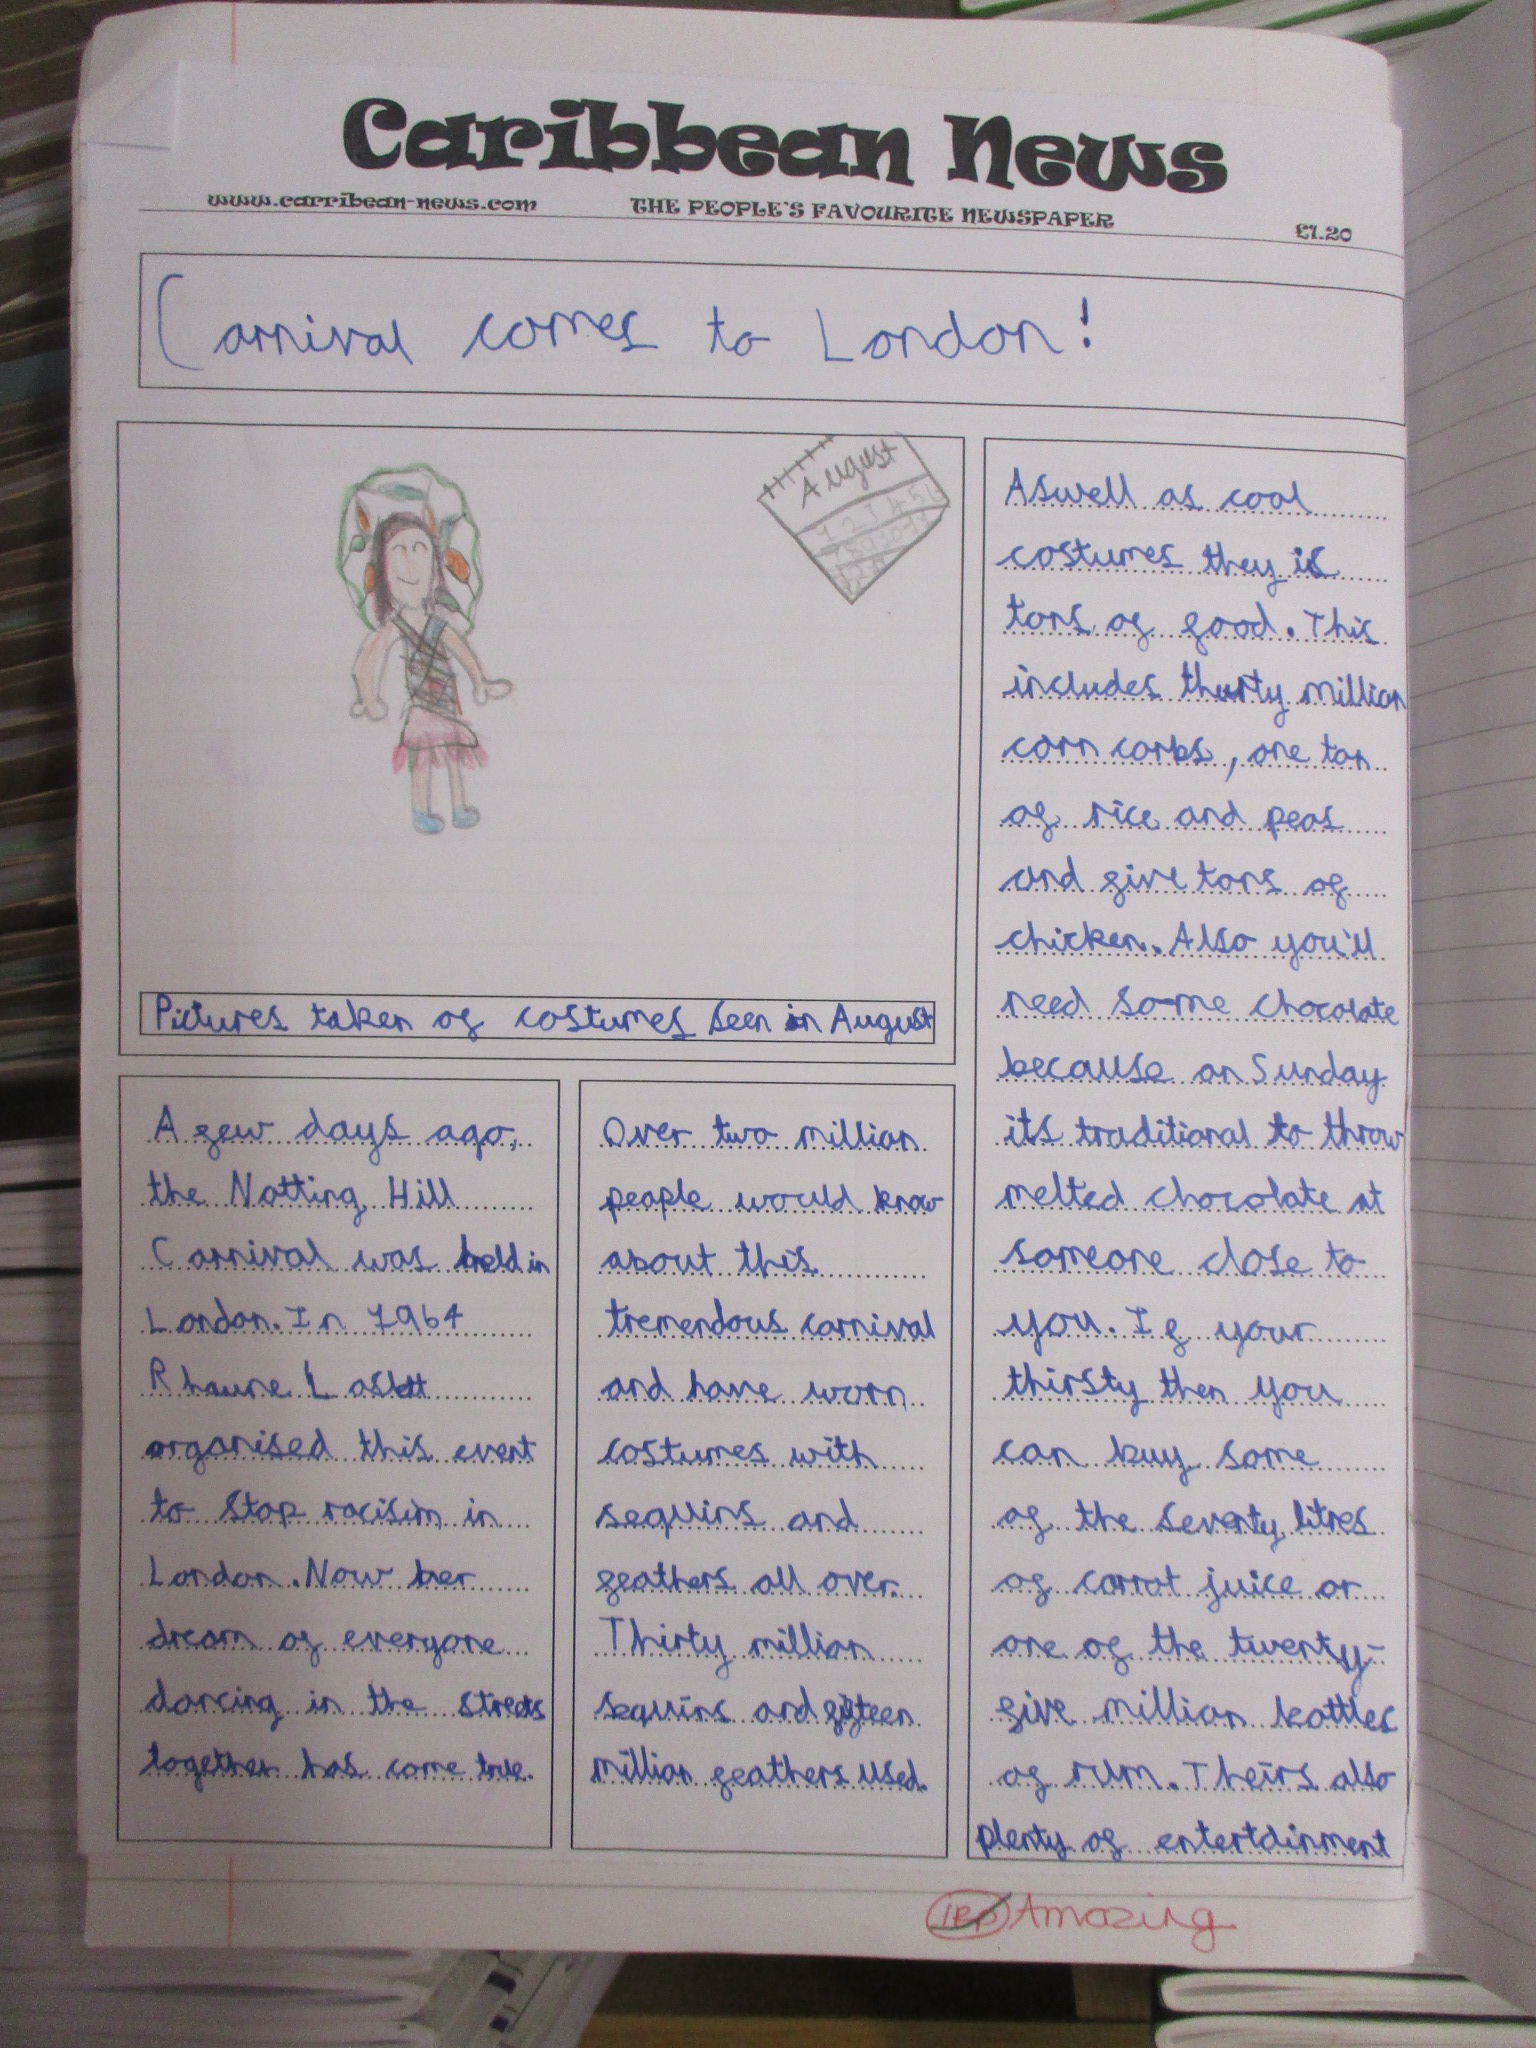 Caribbean News
www.carribean-news.com THE PEOPLE'S FAVOURITE NEWSPAPER £1.20
Carnival comes to London!
August
1 2 3 4 5 6
Pictures taken of costumes seen in August
A few days ago,
the Notting Hill
Carnival was held in
London. In 1964
Rhaune Laslett
organised this event
to stop racisim in
London. Now her
dream of everyone
dancing in the streets
together has come true.
Over two million
people would know
about this
tremendous carnival
and have worn
costumes with
sequins and
feathers all over.
Thirty million
sequins and fifteen
million feathers used.
Aswell as cool
costumes they is
tons of food. This
includes thurty million
corn corbs, one ton
of rice and peas
and five tons of
chicken. Also you'll
need some chocolate
because on Sunday
its traditional to throw
melted chocolate at
someone close to
you. If your
thirsty then you
can buy some
of the seventy litres
of carrot juice or
one of the twenty-
five million bottles
of rum. Theirs also
plenty of entertainment
Amazing